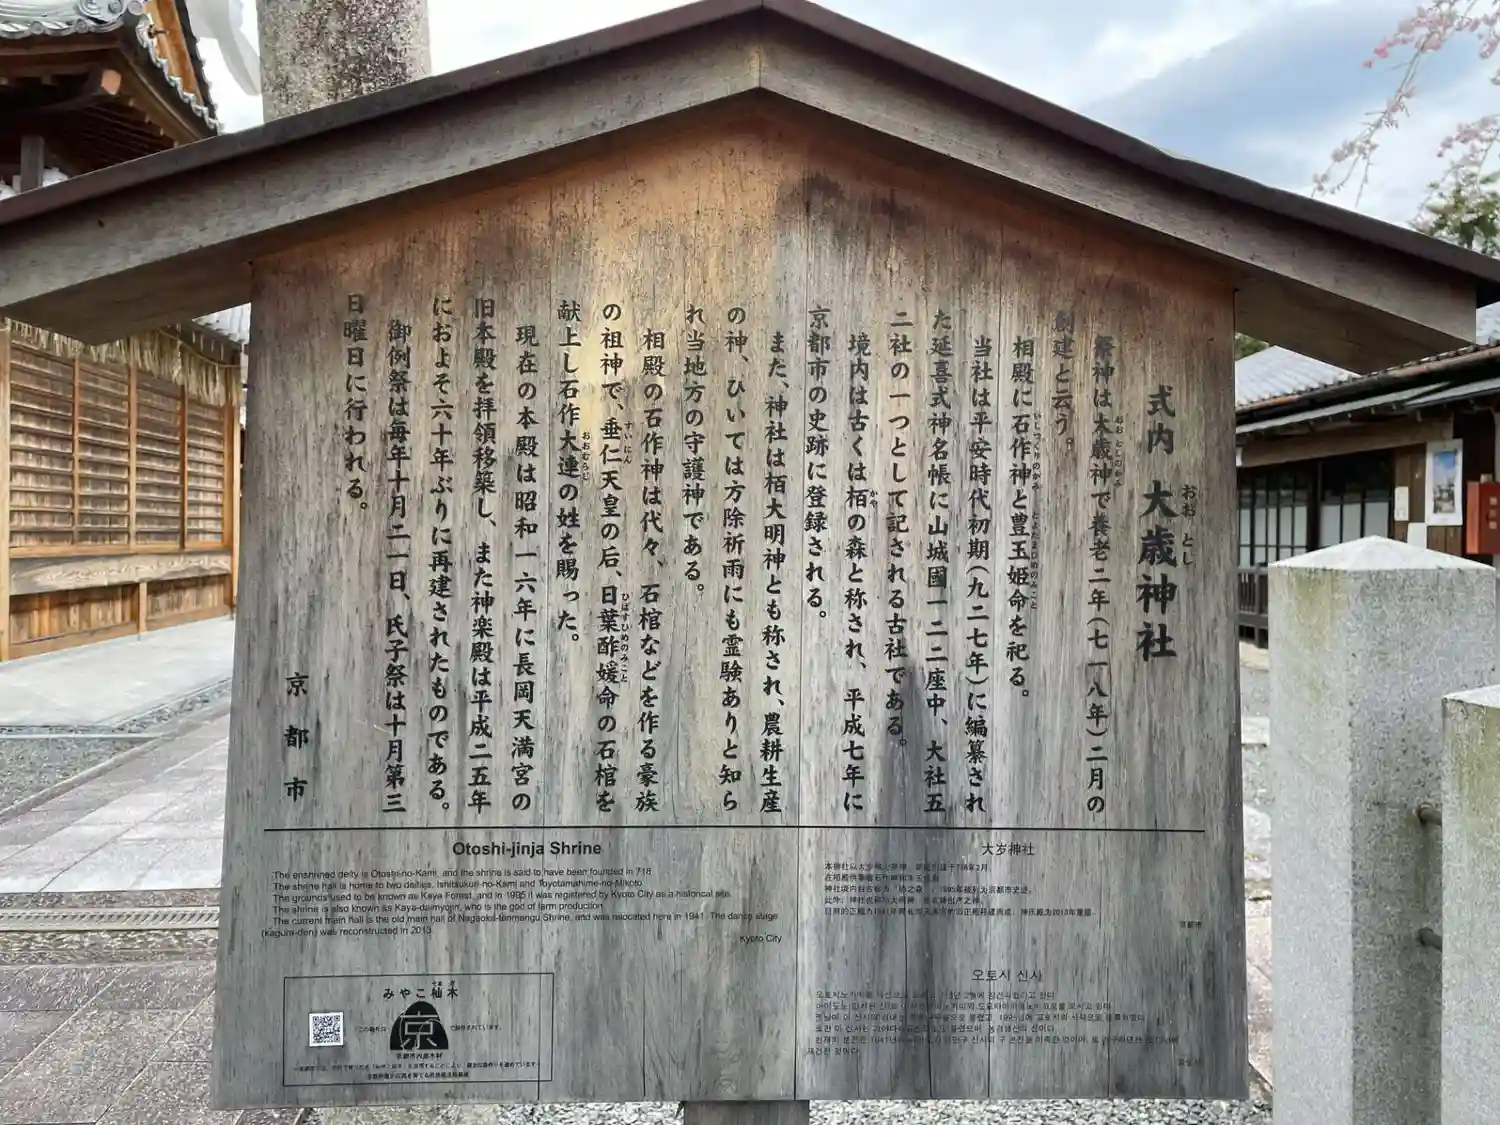 式内 大歳神社
おお とし
祭神は大歳神で養老二年(七一八年)二月の
おおとしのかみ
創建と云う。
相殿に石作神と豊玉姫命を祀る。
いしつくりのかみ とよたまひめのみこと
当社は平安時代初期(九二七年)に編纂され
た延喜式神名帳に山城國一二二座中、大社五
二社の一つとして記される古社である。
境内は古くは栢の森と称され、平成七年に
かや
京都市の史跡に登録される。
また、神社は栢大明神とも称され、農耕生産
の神、ひいては方除祈雨にも霊験ありと知ら
れ当地方の守護神である。
相殿の石作神は代々、石棺などを作る豪族
の祖神で、垂仁天皇の后、日葉酢媛命の石棺を
すいにん ひばすひめのみこと
献上し石作大連の姓を賜った。
おおむらじ
現在の本殿は昭和一六年に長岡天満宮の
旧本殿を拝領移築し、また神楽殿は平成二五年
におよそ六十年ぶりに再建されたものである。
御例祭は毎年十月二一日、氏子祭は十月第三
日曜日に行われる。
京都市
Otoshi-jinja Shrine
The enshrined deity is Otoshi-no-Kami, and the shrine is said to have been founded in 718.
The shrine hall is home to two deities, Ishitsukuri-no-Kami and Toyotamahime-no-Mikoto.
The grounds used to be known as Kaya Forest, and in 1995 it was registered by Kyoto City as a historical site.
The shrine is also known as Kaya-daimyojin, who is the god of farm production.
The current main hall is the old main hall of Nagaoka-tenmangu Shrine, and was relocated here in 1941. The dance stage
(kagura-den) was reconstructed in 2013.
Kyoto City
大岁神社
京都市
오토시 신사
みやこ杣木
そま ぎ
京
京都市内産木材